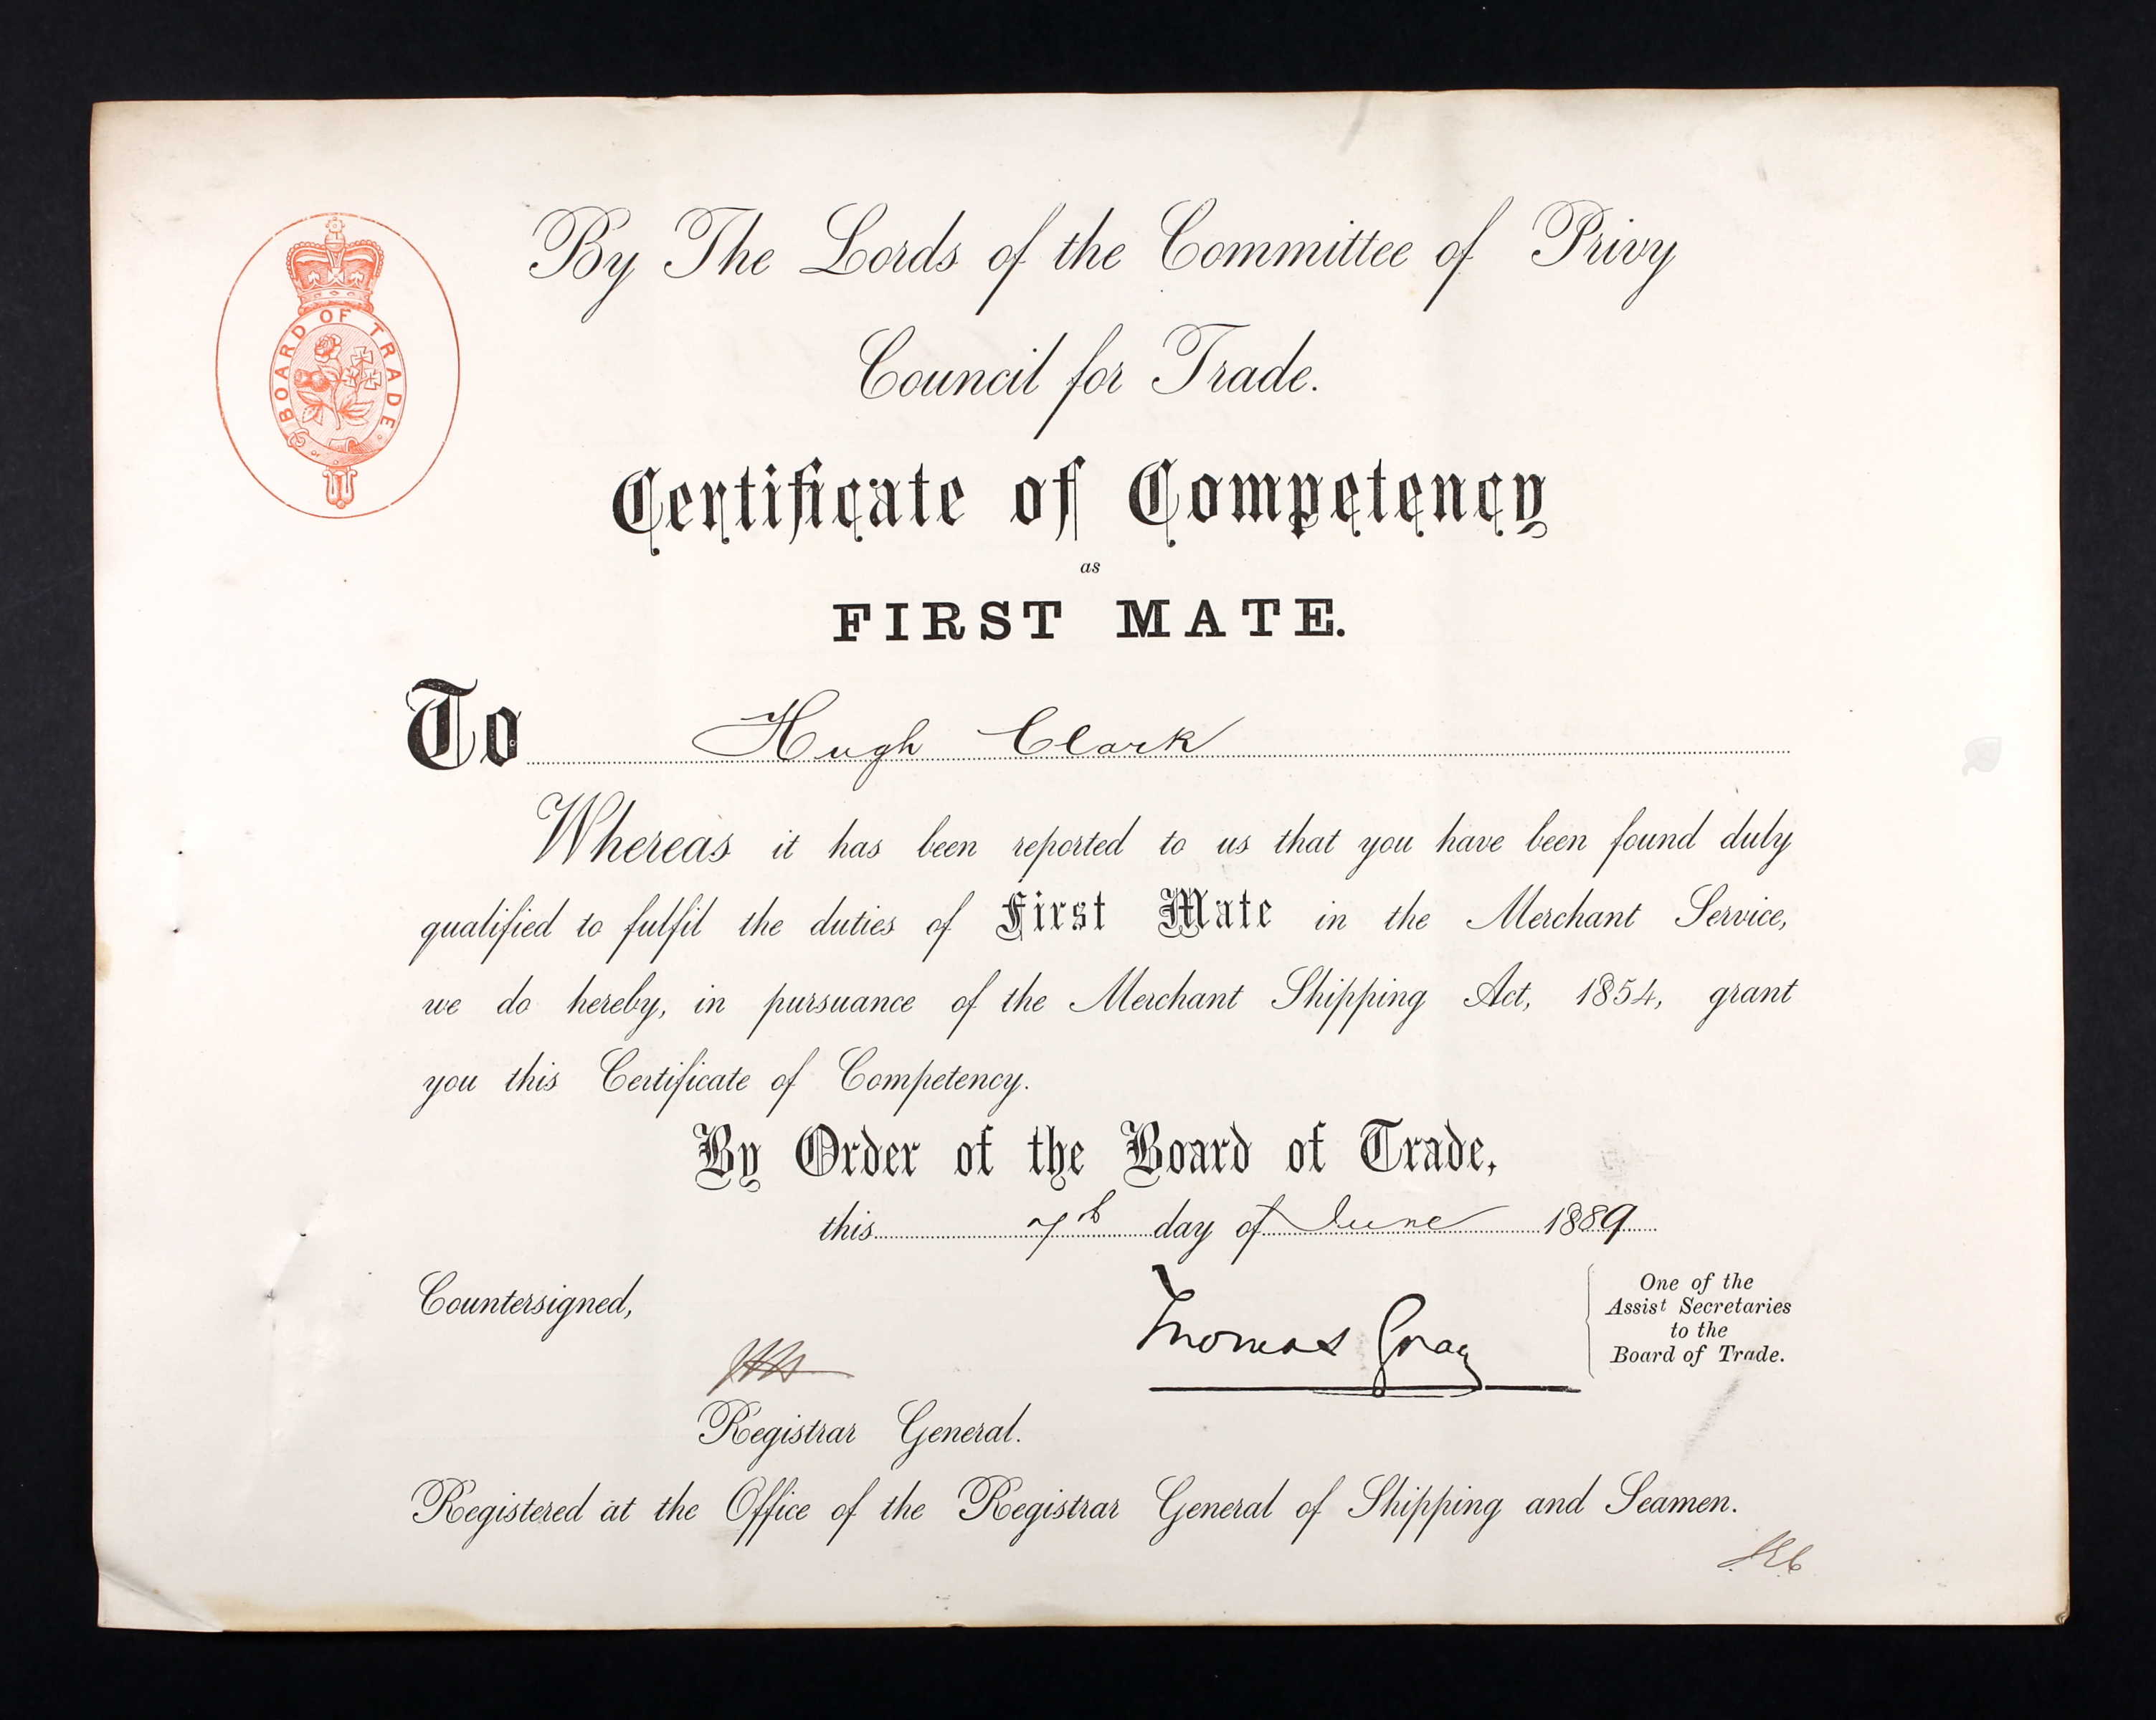 BOARD OF TRADE
By The Lords of the Committee of Privy
Council for Trade.
Certificate of Competency
as
FIRST MATE.
To Hugh Clark
Whereas it has been reported to us that you have been found duly
qualified to fulfil the duties of First Mate in the Merchant Service,
we do hereby, in pursuance of the Merchant Shipping Act, 1854, grant
you this Certificate of Competency.
By Order of the Board of Trade,
this 7th day of June 1889
Countersigned,
Thomas Gray
One of the
Assist Secretaries
to the
Board of Trade.
Registrar General.
Registered at the Office of the Registrar General of Shipping and Seamen.